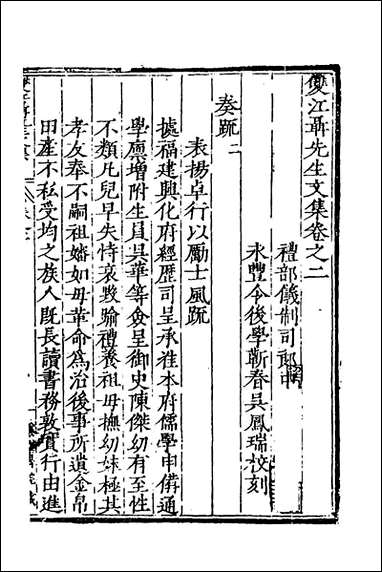 雙江聶先生文集卷之二
禮部儀制司郎中
永豐令後學蘄春吳鳳瑞校刻
奏疏二
表揚卓行以勵士風疏
據福建興化府經歷司呈承准本府儒學申備通
學廩增附生員吳華等僉呈御史陳傑幼有至性
不類凡兒早失恃哀毀踰禮養祖母撫幼妹極其
孝友奉不嗣祖嬸如母革命爲治後事所遺金帛
田產不私受均之族人旣長讀書務敦實行由進